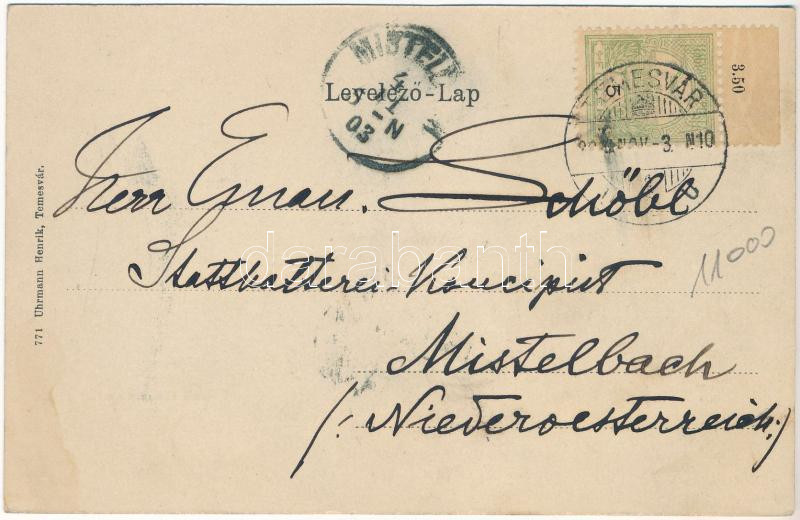 MISTELB
4
11
03 N
Levelező-Lap
TEMESVÁR
NOV-3. N10
3.50
Herr Eman. Schöbl
Statthalterei-Koncipist
Mistelbach
(:Niederoesterreich:)
11000
771 Uhrmann Henrik, Temesvár.
darabanth